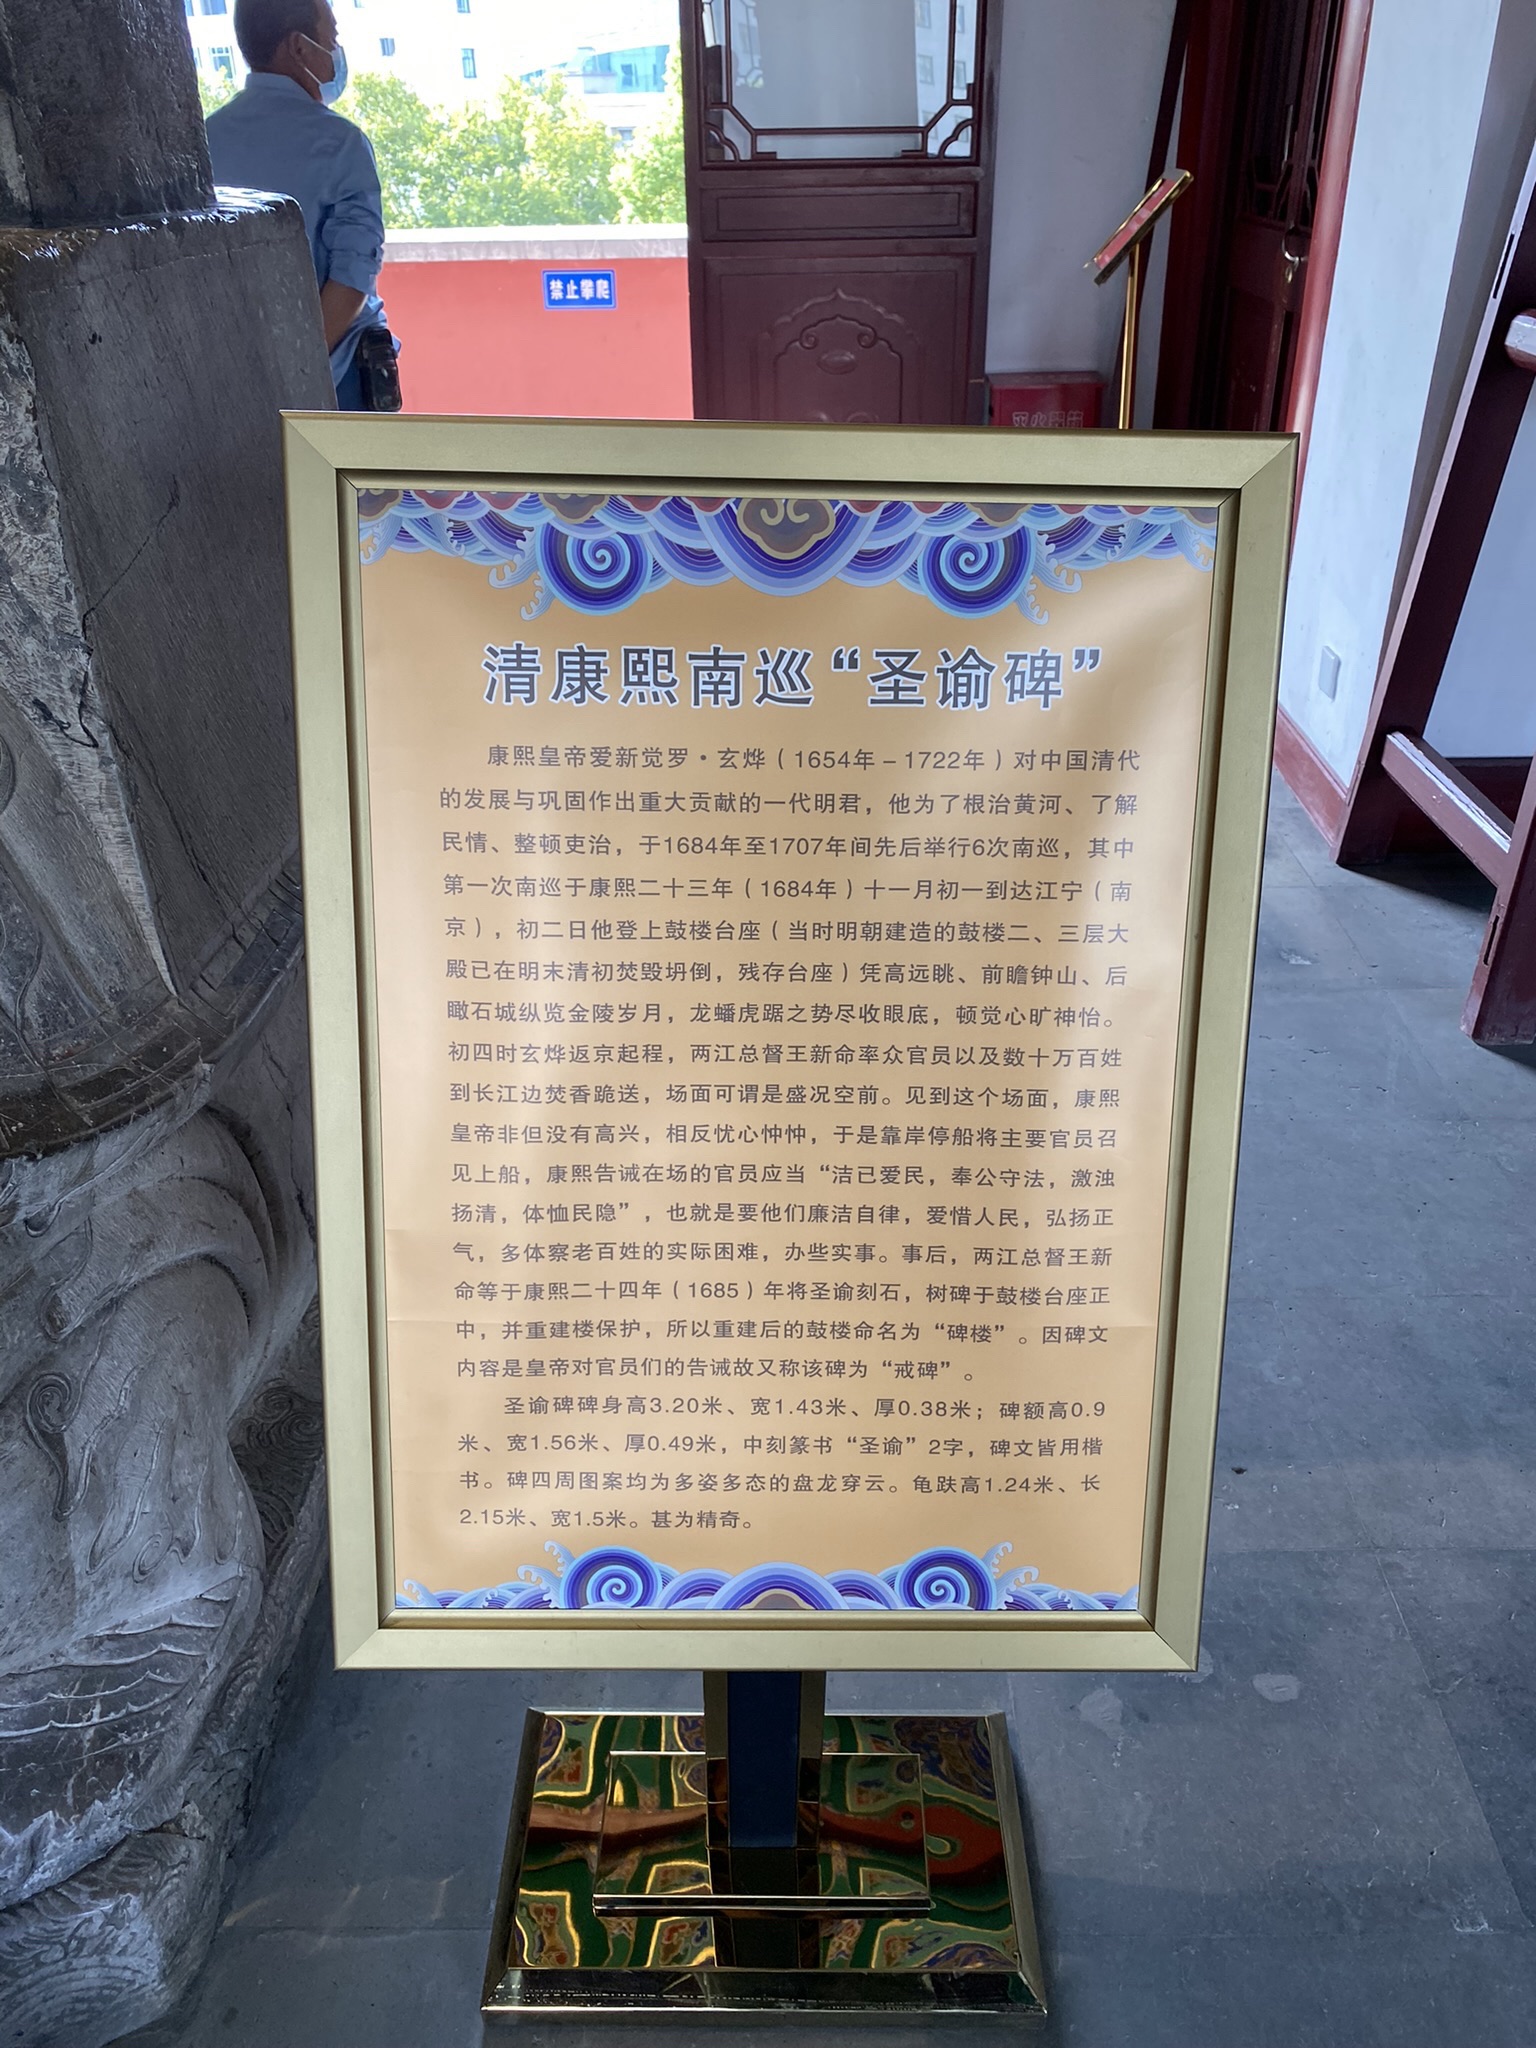 禁止攀爬
灭火器箱
清康熙南巡“圣谕碑”
康熙皇帝爱新觉罗·玄烨（1654年－1722年）对中国清代
的发展与巩固作出重大贡献的一代明君，他为了根治黄河、了解
民情、整顿吏治，于1684年至1707年间先后举行6次南巡，其中
第一次南巡于康熙二十三年（1684年）十一月初一到达江宁（南
京），初二日他登上鼓楼台座（当时明朝建造的鼓楼二、三层大
殿已在明末清初焚毁坍倒，残存台座）凭高远眺、前瞻钟山、后
瞰石城纵览金陵岁月，龙蟠虎踞之势尽收眼底，顿觉心旷神怡。
初四时玄烨返京起程，两江总督王新命率众官员以及数十万百姓
到长江边焚香跪送，场面可谓是盛况空前。见到这个场面，康熙
皇帝非但没有高兴，相反忧心忡忡，于是靠岸停船将主要官员召
见上船，康熙告诫在场的官员应当“洁已爱民，奉公守法，激浊
扬清，体恤民隐”，也就是要他们廉洁自律，爱惜人民，弘扬正
气，多体察老百姓的实际困难，办些实事。事后，两江总督王新
命等于康熙二十四年（1685）年将圣谕刻石，树碑于鼓楼台座正
中，并重建楼保护，所以重建后的鼓楼命名为“碑楼”。因碑文
内容是皇帝对官员们的告诫故又称该碑为“戒碑”。
圣谕碑碑身高3.20米、宽1.43米、厚0.38米；碑额高0.9
米、宽1.56米、厚0.49米，中刻篆书“圣谕”2字，碑文皆用楷
书。碑四周图案均为多姿多态的盘龙穿云。龟趺高1.24米、长
2.15米、宽1.5米。甚为精奇。